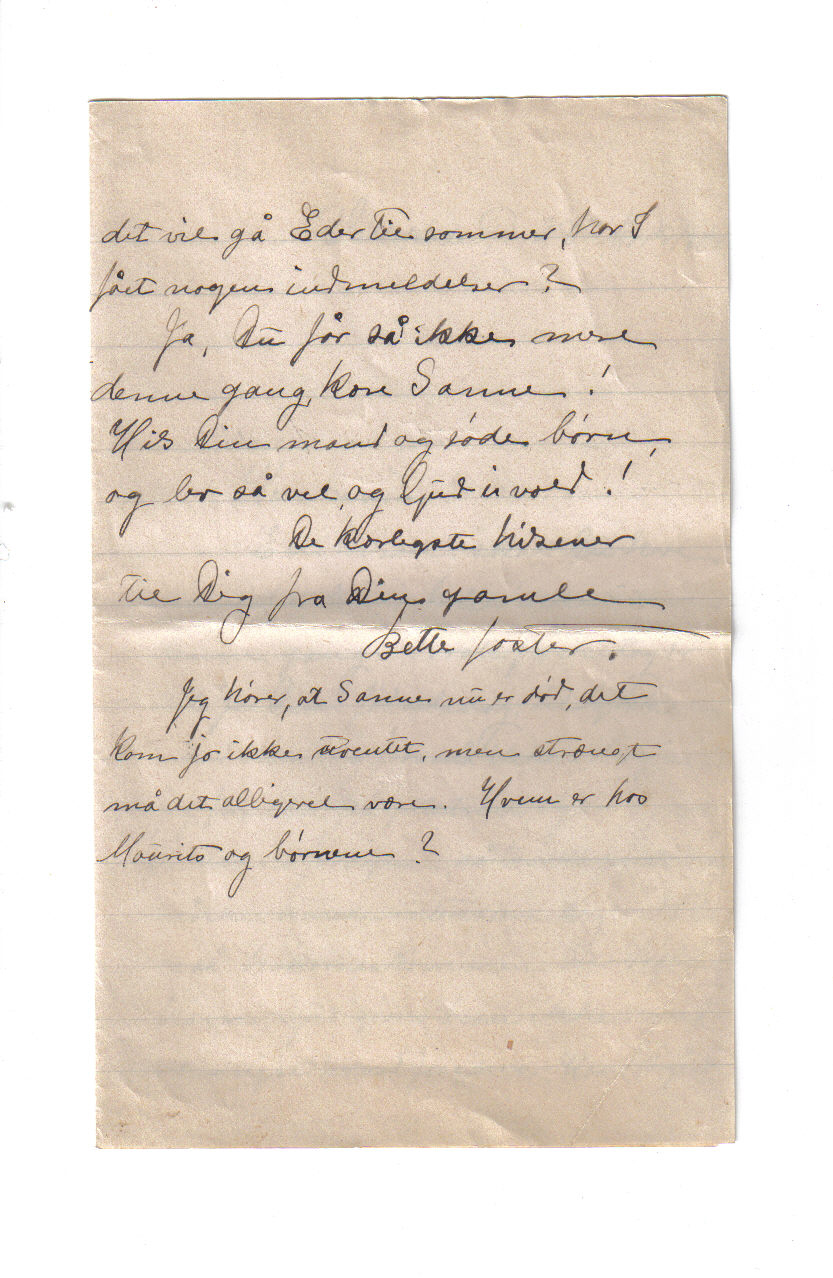 det vil gå Eder til sommer, har I
fået nogen indmeldelser?
Ja, Du får så ikke mere
denne gang, kære Sanne!
Hils Din mand og søde børn,
og lev så vel, og Gud i vold!
De kærligste hilsener
til Dig fra Din gamle
Bette faster.
Jeg hører, at Sanne nu er død, det
kom jo ikke uventet, men strængt
må det alligevel være. Hvem er hos
Maurits og børnene?